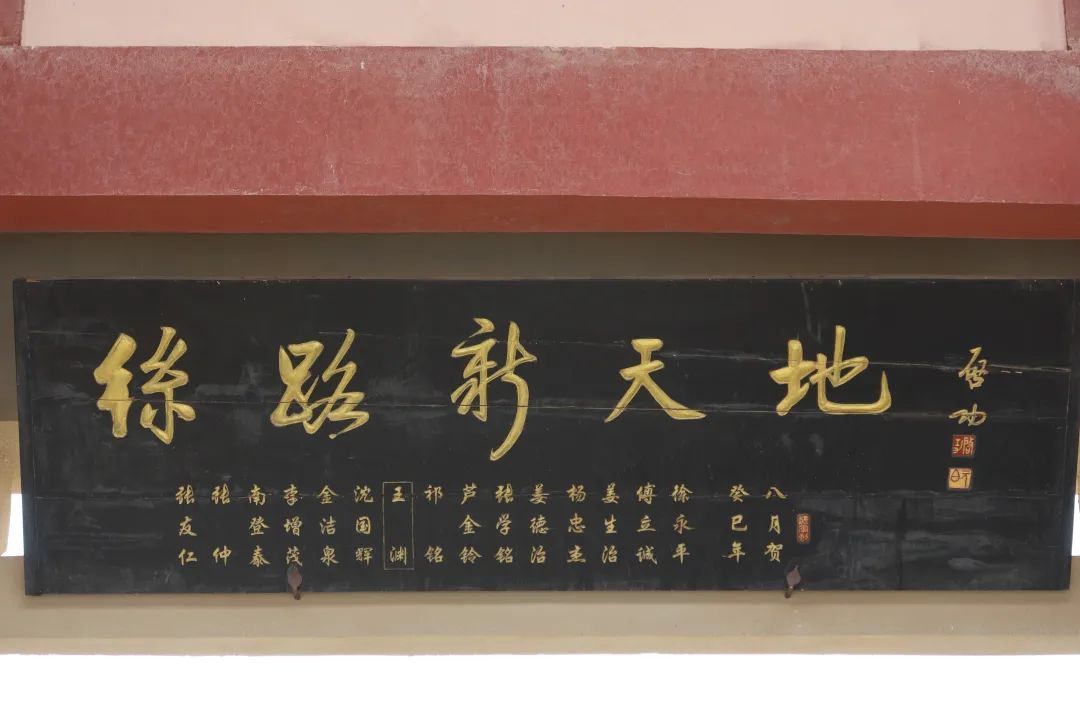 絲路新天地
启功
张友仁
张仲
南登泰
李增茂
金洁泉
沈国辉
王渊
祁铭
芦金铃
张学铭
姜德治
杨忠杰
姜生治
傅立诚
徐永平
癸巳年
八月贺